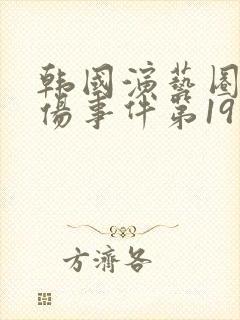 韩國演藝圈
傷事件第19
方濟各